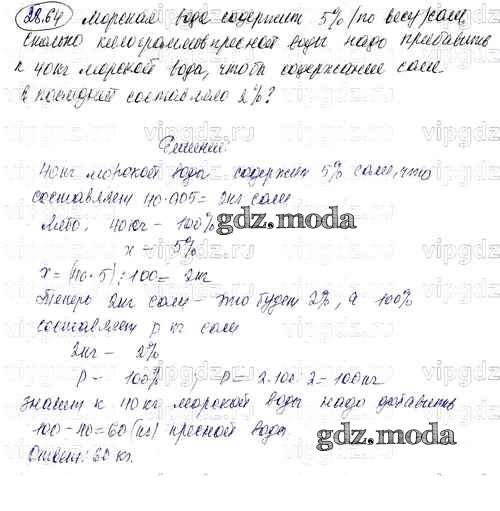 28.64 Морская вода содержит 5% (по весу) соли,
сколько килограммов пресной воды надо прибавить
к 40кг морской вода, чтобы содержание соли
в последней составляло 2%?
Решение:
40кг морской вода содержит 5% соли, что
составляет 40·0.05= 2кг соли
Либо, 40кг - 100%
gdz.moda
x - 5%
x = (40·5):100= 2кг
Теперь 2кг соли - это будет 2%, а 100%
составляет p кг соли
2кг - 2%
p - 100%, p = 2·100:2=100кг
значит к 40кг морской воды надо добавить
100-40=60(кг) пресной вода
gdz.moda
Ответ: 60 кг.
vipgdz.ru